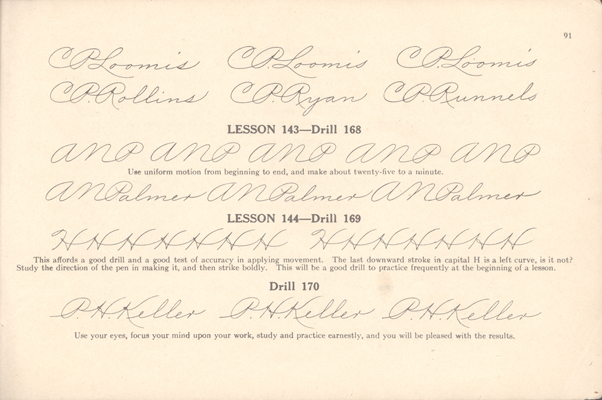 91
C.P.Loomis C.P.Loomis C.P.Loomis
C.P.Rollins C.P.Ryan C.P.Runnels
LESSON 143—Drill 168
ANP ANP ANP ANP ANP
Use uniform motion from beginning to end, and make about twenty-five to a minute.
ANPalmer ANPalmer ANPalmer
LESSON 144—Drill 169
HHHHHHH HHHHHHH
This affords a good drill and a good test of accuracy in applying movement. The last downward stroke in capital H is a left curve, is it not?
Study the direction of the pen in making it, and then strike boldly. This will be a good drill to practice frequently at the beginning of a lesson.
Drill 170
P.H.Keller P.H.Keller P.H.Keller
Use your eyes, focus your mind upon your work, study and practice earnestly, and you will be pleased with the results.